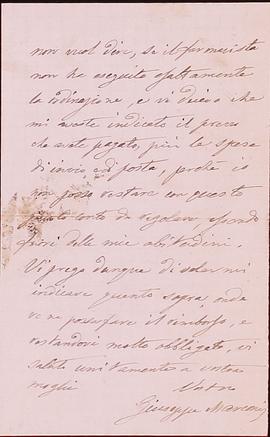 non vuol dire, se il farmacista
non ha eseguito esattamente
la ordinazione, e vi dicevo che
mi aveste indicato il prezzo
che avete pagato, più le spese
di invio e di posta, perchè io
non posso restare con questo
conto da regolare, essendo
fuori delle mie abitudini.
Vi prego dunque di volermi
indicare quanto sopra, onde
ve ne possa fare il rimborso, e
restandovi molto obbligato, vi
saluto unitamente a vostra
moglie
Vostro
Giuseppe Marconi